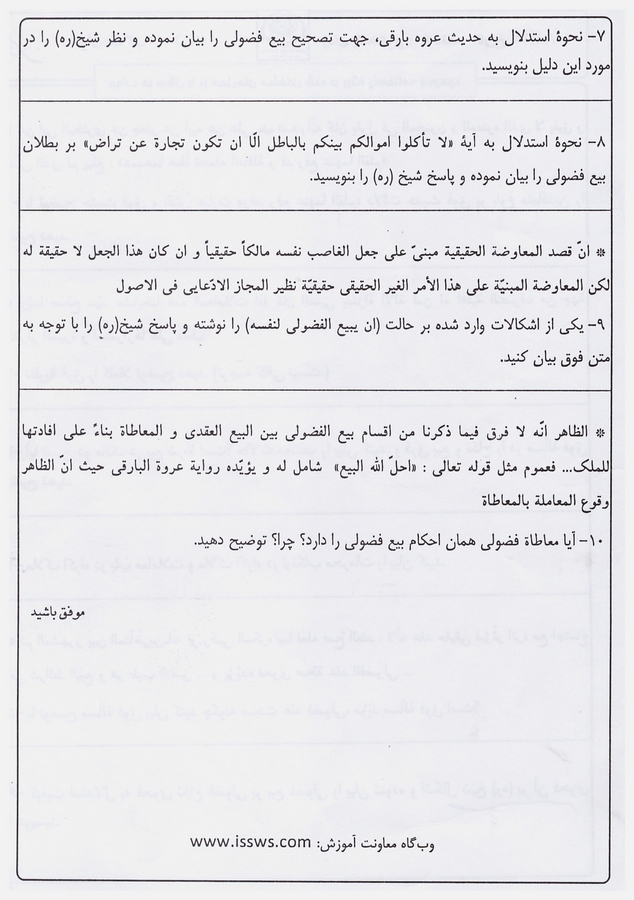 ۷- نحوهٔ استدلال به حدیث عروه بارقی، جهت تصحیح بیع فضولی را بیان نموده و نظر شیخ(ره) را در
مورد این دلیل بنویسید.
۸- نحوهٔ استدلال به آیهٔ «لا تأکلوا اموالکم بینکم بالباطل الّا ان تکون تجارة عن تراض» بر بطلان
بیع فضولی را بیان نموده و پاسخ شیخ (ره) را بنویسید.
* انّ قصد المعاوضة الحقیقیة مبنیّ علی جعل الغاصب نفسه مالکاً حقیقیاً و ان کان هذا الجعل لا حقیقة له
لکن المعاوضة المبنیّة علی هذا الأمر الغیر الحقیقی حقیقیّة نظیر المجاز الادّعایی فی الاصول
۹- یکی از اشکالات وارد شده بر حالت (ان یبیع الفضولی لنفسه) را نوشته و پاسخ شیخ(ره) را با توجه به
متن فوق بیان کنید.
* الظاهر انّه لا فرق فیما ذکرنا من اقسام بیع الفضولی بین البیع العقدی و المعاطاة بناءً علی افادتها
للملک... فعموم مثل قوله تعالی : «احلّ الله البیع» شامل له و یؤیّده روایة عروة البارقی حیث انّ الظاهر
وقوع المعاملة بالمعاطاة
۱۰- آیا معاطاة فضولی همان احکام بیع فضولی را دارد؟ چرا؟ توضیح دهید.
موفق باشید
وب‌گاه معاونت آموزش: www.issws.com